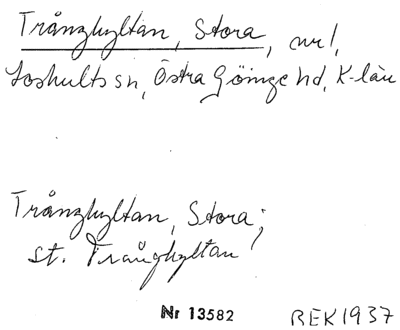 Trånghyltan, Stora, nr 1,
Loshults sn, Östra Göinge hd, K-län
Trånghyltan, Stora;
st. Trånghyltan
Nr 13582 REK 1937